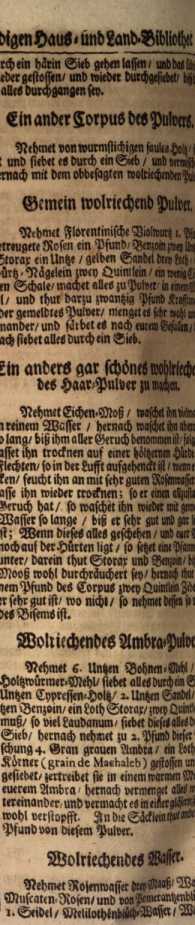 digen Haus- und Land-Bibliothec
rch ein härin Sieb gehen lassen / und das
eder gestossen / und wieder durchgesiebet /
alles durchgangen sey.
Ein ander Corpus des Pulvers.
Nehmet von wurmstichigen faulen Holtz /
t und siebet es durch ein Sieb / und
ernach mit dem obbesagten wolriechenden
Gemein wolriechend Pulver.
Nehmet Florentinische Violwurtz 1.
etreugete Rosen ein Pfund / Benzoin zwey
Storax ein Untze / gelben Sandel drey Loth /
ürtz-Nägelein zwey Quintlein / ein wenig
en Schale / machet alles zu Pulver / in einem
l / und thut darzu zwantzig Pfund
er gemeldtes Pulver / menget es sehr wohl
nander / und färbet es nach eurem Gefallen /
ach siebet alles durch ein Sieb.
Ein anders gar schönes wohlriechen
des Haar-Pulver zu machen.
Nehmet Eichen-Moß / waschet ihn
n reinem Wasser / hernach waschet ihn
o lang / biß ihm aller Geruch benommen ist /
asset ihn trocknen auf einer höltzernen
flechten / so in der Lufft aufgehenckt ist /
ken / feucht ihn an mit sehr guten Rosenwasser
asse ihn wieder trocknen; so er einen
Geruch hat / so waschet ihn wieder mit
Wasser so lange / biß er sehr gut und gar
st; Wenn dieses alles geschehen / und
noch auf der Hürten ligt / so setzet eine
unter / darein thut Storax und Benzoin /
Mooß wohl durchräuchert sey / hernach thut
nem Pfund des Corpus zwey Quintlein
er sehr gut ist / wo nicht / so nehmet
des Bisems ist.
Wolriechendes Ambra-Pulver
Nehmet 6. Untzen Bohnen-Mehl /
Holtzwürmer-Mehl / siebet alles durch ein
Untzen Cypressen-Holtz / 2. Untzen Sandel /
tzen Benzoin / ein Loth Storax / zwey
muß / so viel Laudanum / siebet dieses alles
Sieb / hernach nehmet zu 2. Pfund dieser
schung 4. Gran grauen Ambra / ein Loth
Körner (grain de Machaleb) gestossen
gesiebet / zertreibet sie in einem warmen
euerem Ambra / hernach vermenget alles
tereinander / und vermacht es in einer
wohl verstopfft. In die Säcklein
Pfund von diesem Pulver.
Wolriechendes Wasser.
Nehmet Rosenwasser drey Maaß /
Muscaten-Rosen / und von Pomerantzenblü
1. Seidel / Melilothenblüth-Wasser /